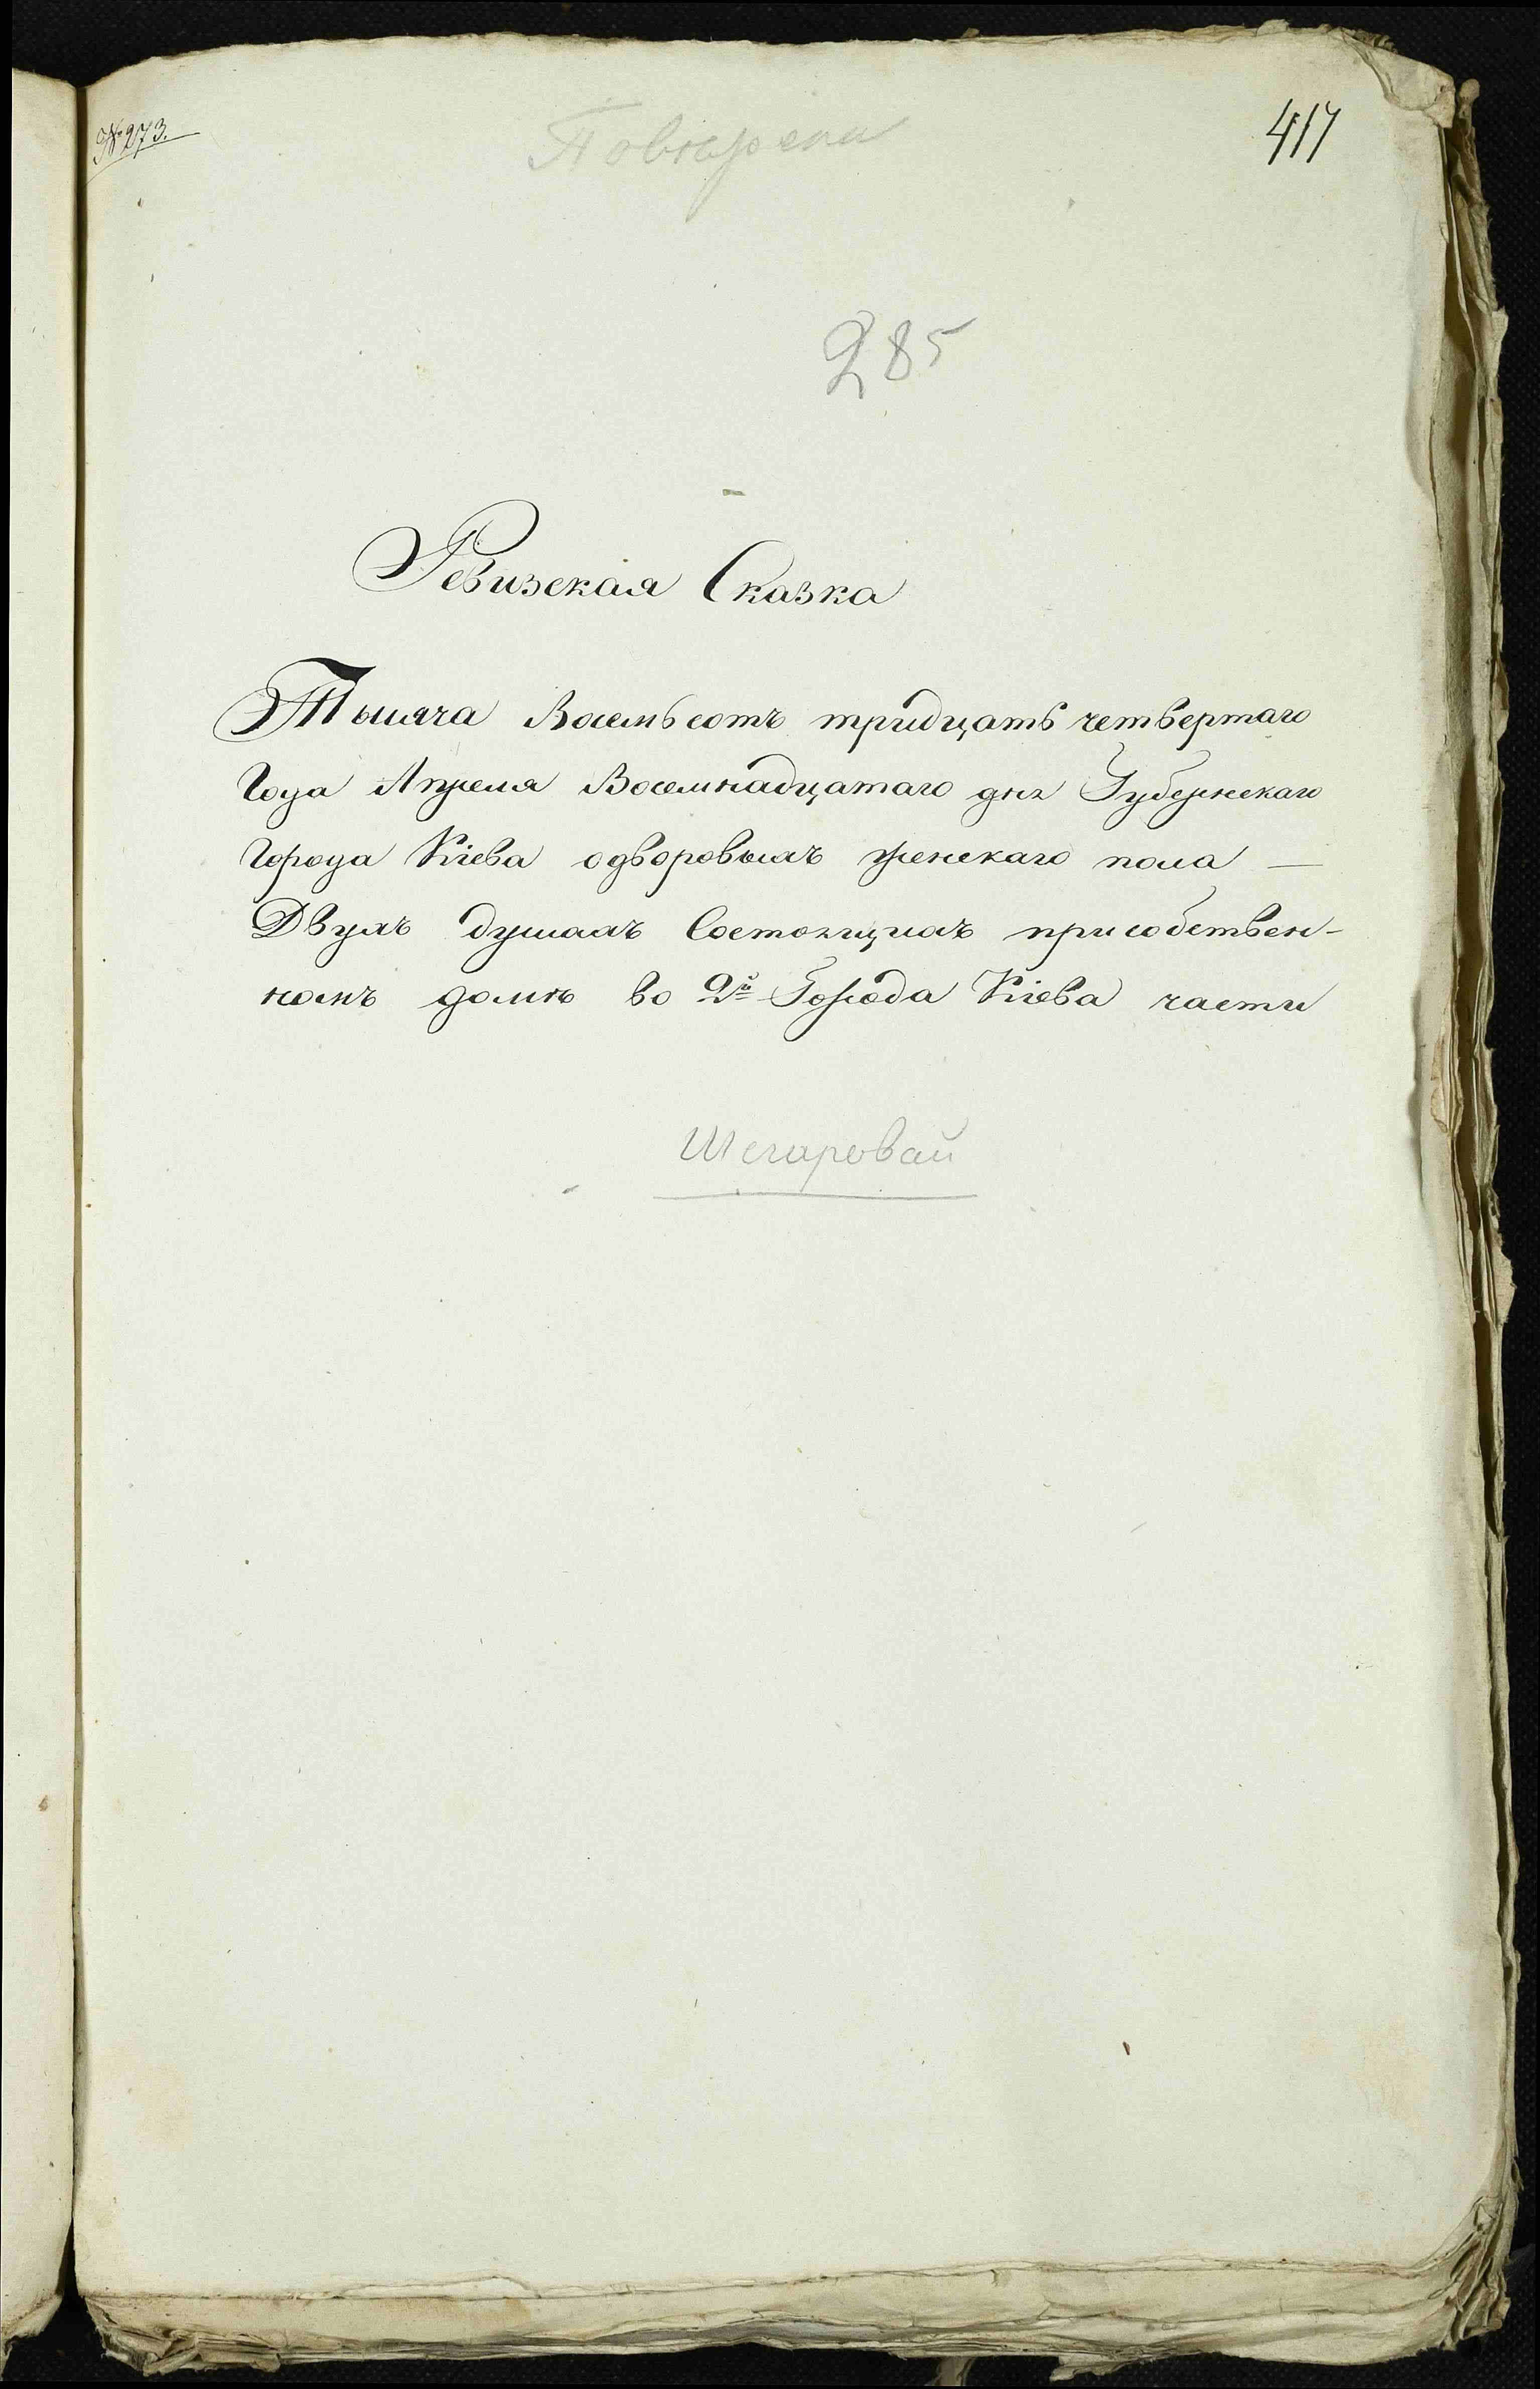 № 273.
417
285
Ревизская Сказка
Тысяча Восемьсотъ тридцать четвертаго
Года Апреля Восемнадцатаго дня Губернскаго
Города Кіева одворовыхъ женскаго пола —
Двухъ душахъ Состоящихъ присобствен-
номъ домѣ во 2й Города Кіева части